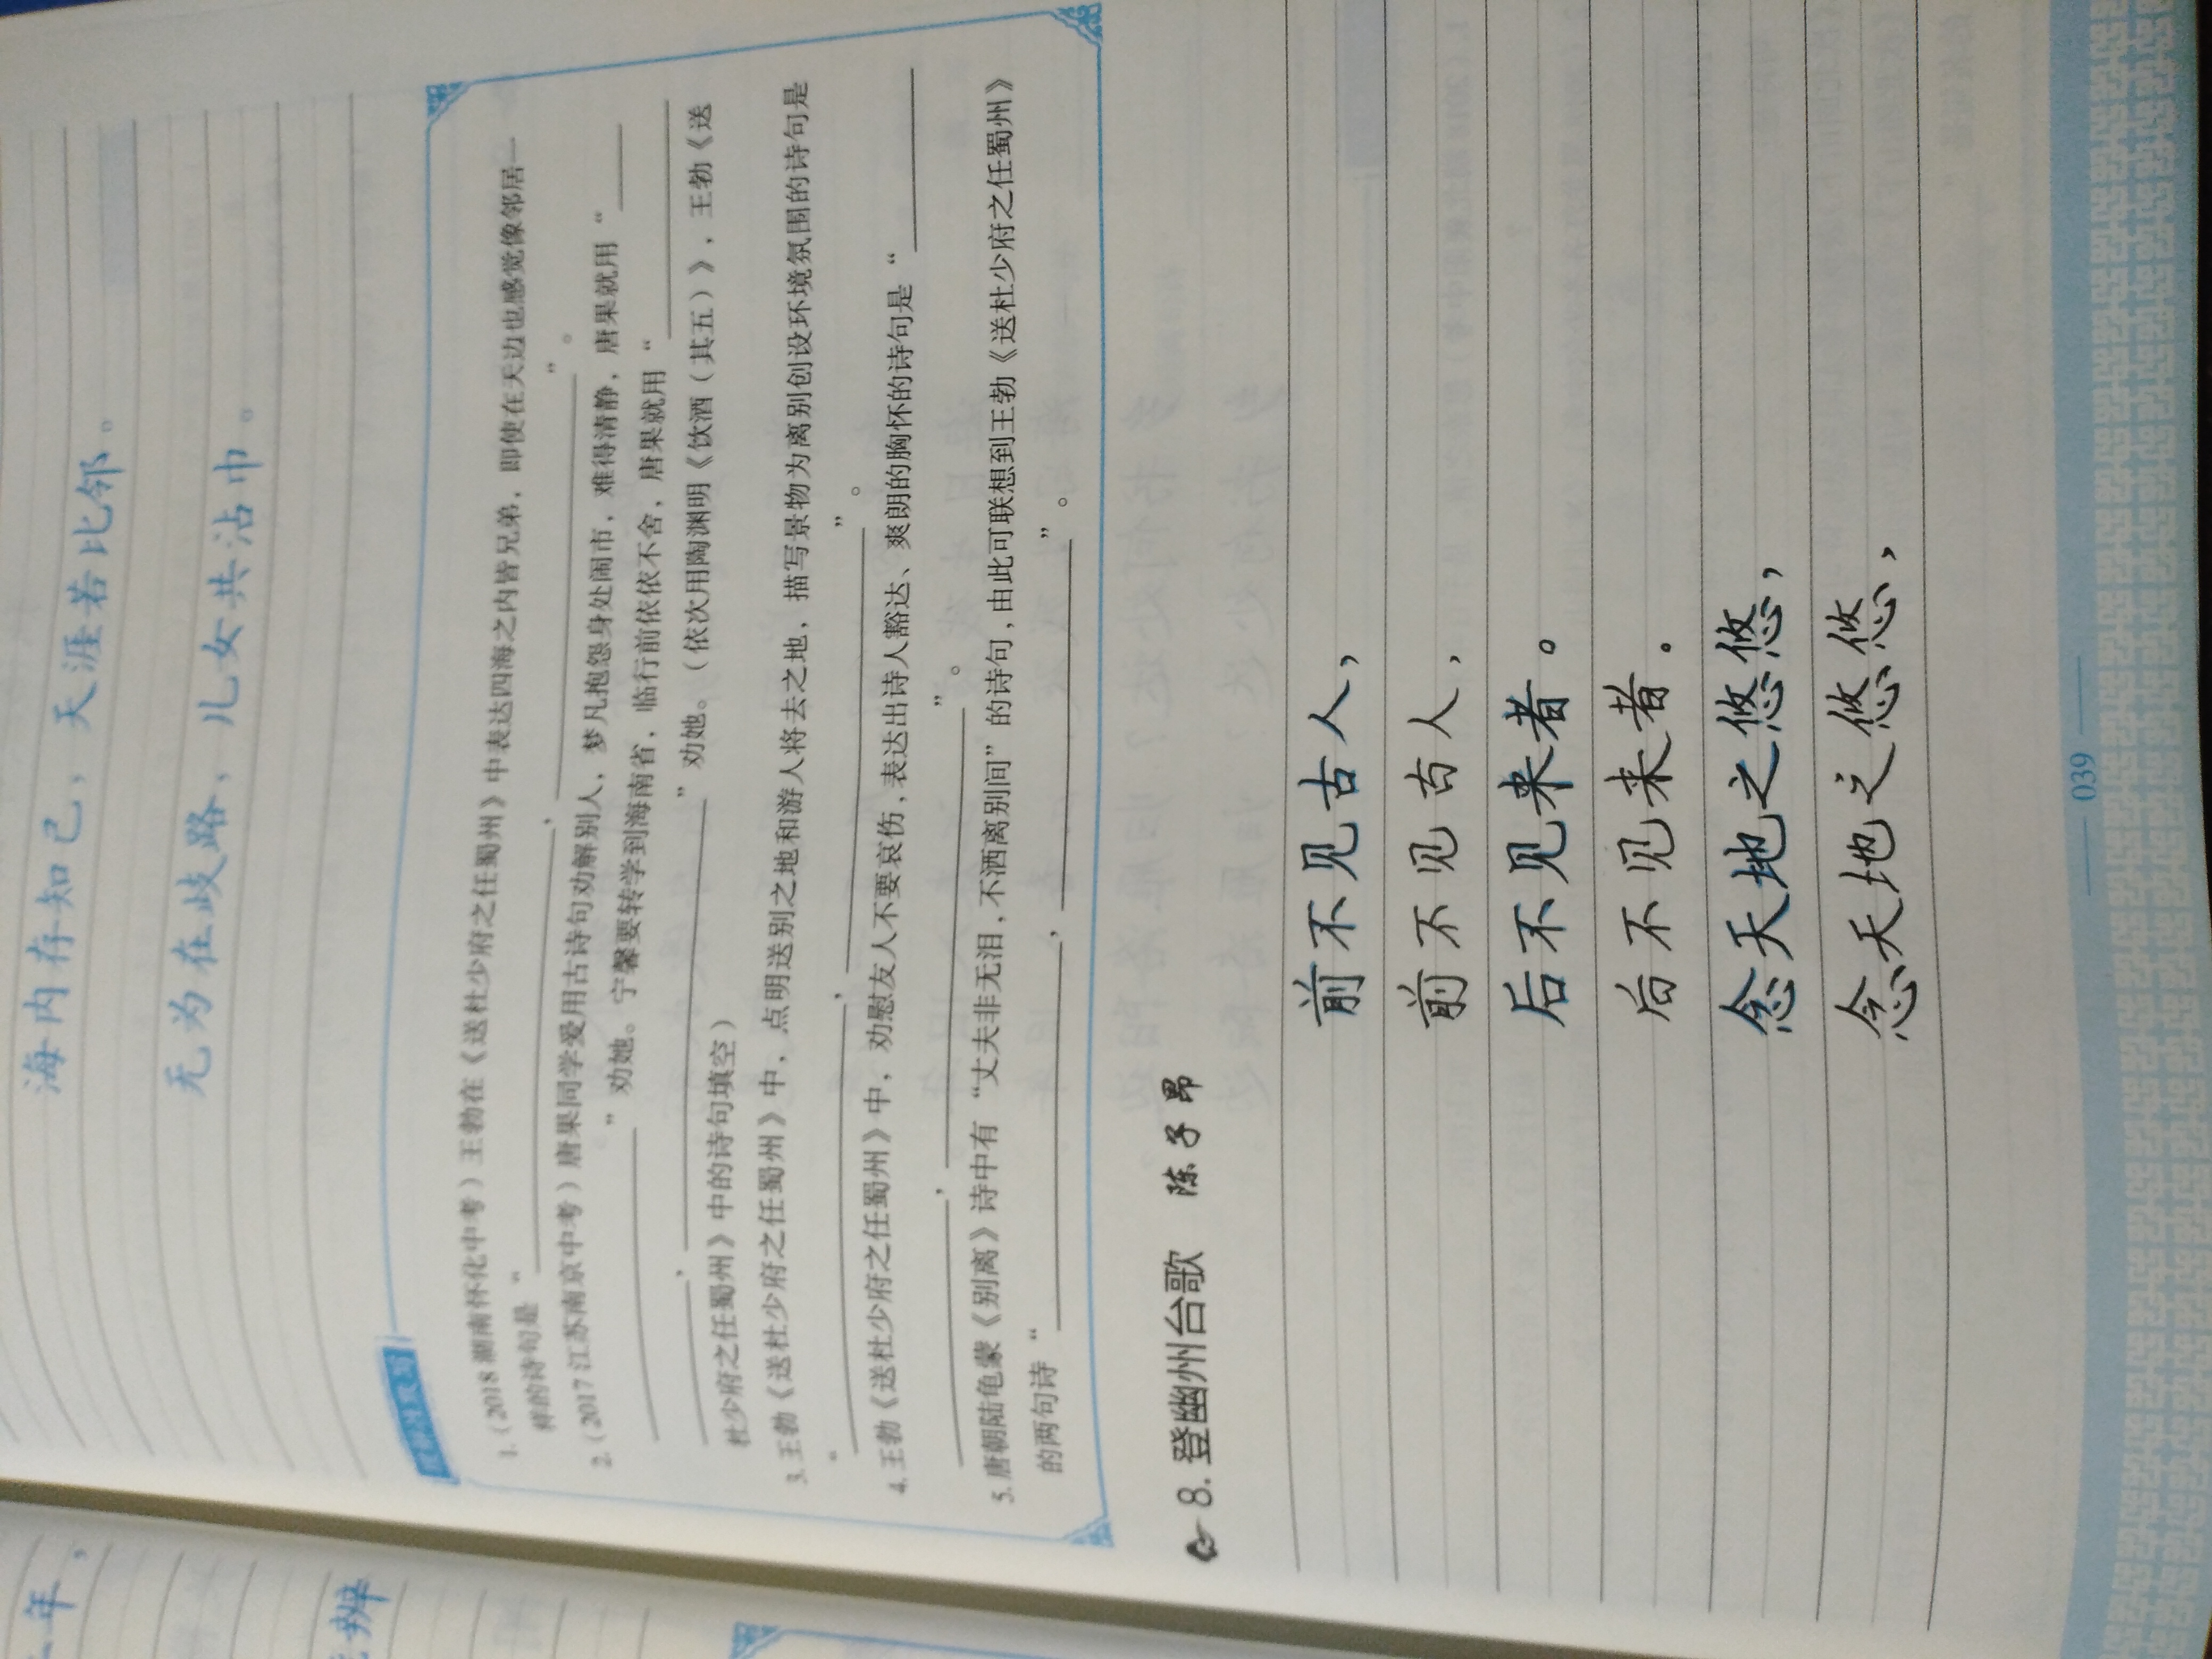 海内存知己，天涯若比邻。
无为在歧路，儿女共沾巾。
1.（2018湖南怀化中考）王勃在《送杜少府之任蜀州》中表达四海之内皆兄弟，即使在天边也感觉像邻居一
样的诗句是“____________，____________”。
2.（2017江苏南京中考）唐果同学爱用古诗句劝解别人，梦凡抱怨身处闹市，难得清静，唐果就用“____
____________”劝她。宁馨要转学到海南省，临行前依依不舍，唐果就用“____________
______，____________”劝她。（依次用陶渊明《饮酒（其五）》，王勃《送
杜少府之任蜀州》中的诗句填空）
3.王勃《送杜少府之任蜀州》中，点明送别之地和游人将去之地，描写景物为离别创设环境氛围的诗句是
“____________，____________”。
4.王勃《送杜少府之任蜀州》中，劝慰友人不要哀伤，表达出诗人豁达、爽朗的胸怀的诗句是“________
________，____________”。
5.唐朝陆龟蒙《别离》诗中有“丈夫非无泪，不洒离别间”的诗句，由此可联想到王勃《送杜少府之任蜀州》
的两句诗“____________，____________”。
8.登幽州台歌 陈子昂
前不见古人，
前不见古人，
后不见来者。
后不见来者。
念天地之悠悠，
念天地之悠悠，
039
年，
辨